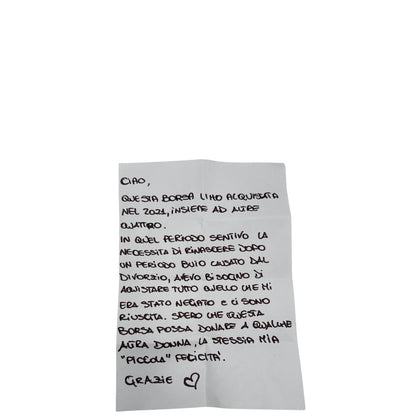 CIAO,
QUESTA BORSA L'HO ACQUISTATA
NEL 2021, INSIEME AD ALTRE
QUATTRO.
IN QUEL PERIODO SENTIVO LA
NECESSITÀ DI RINASCERE DOPO
UN PERIODO BUIO CAUSATO DAL
DIVORZIO, AVEVO BISOGNO DI
AQUISTARE TUTTO QUELLO CHE MI
ERA STATO NEGATO E CI SONO
RIUSCITA. SPERO CHE QUESTA
BORSA POSSA DONARE A QUALCHE
ALTRA DONNA, LA STESSA MIA
"PICCOLA" FELICITÀ.
GRAZIE ♡